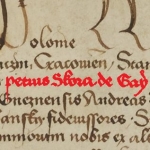 olome
Cracomien Stan
petrus Skora de Gay
Gneznensis Andreas
ansky fideiussores S
mmortm nobis et al